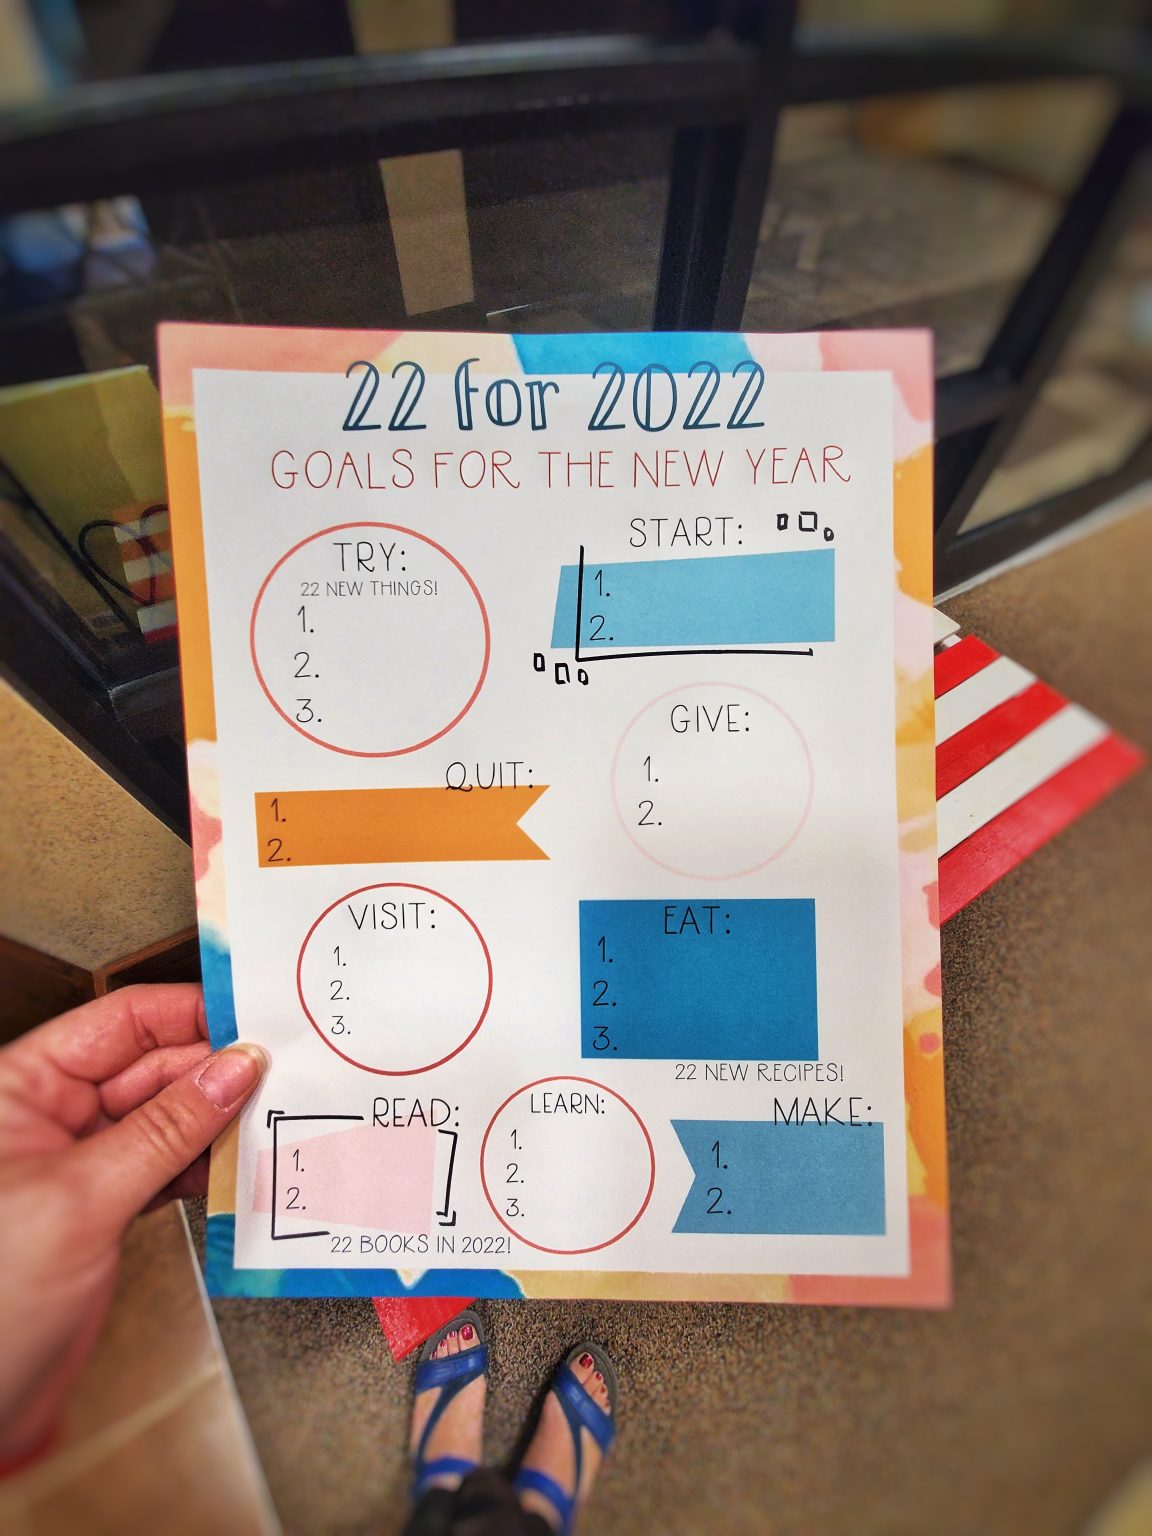 22 for 2022
GOALS FOR THE NEW YEAR
TRY:
22 NEW THINGS!
1.
2.
3.
START:
1.
2.
QUIT:
1.
2.
GIVE:
1.
2.
VISIT:
1.
2.
3.
EAT:
1.
2.
3.
22 NEW RECIPES!
READ:
1.
2.
22 BOOKS IN 2022!
LEARN:
1.
2.
3.
MAKE:
1.
2.